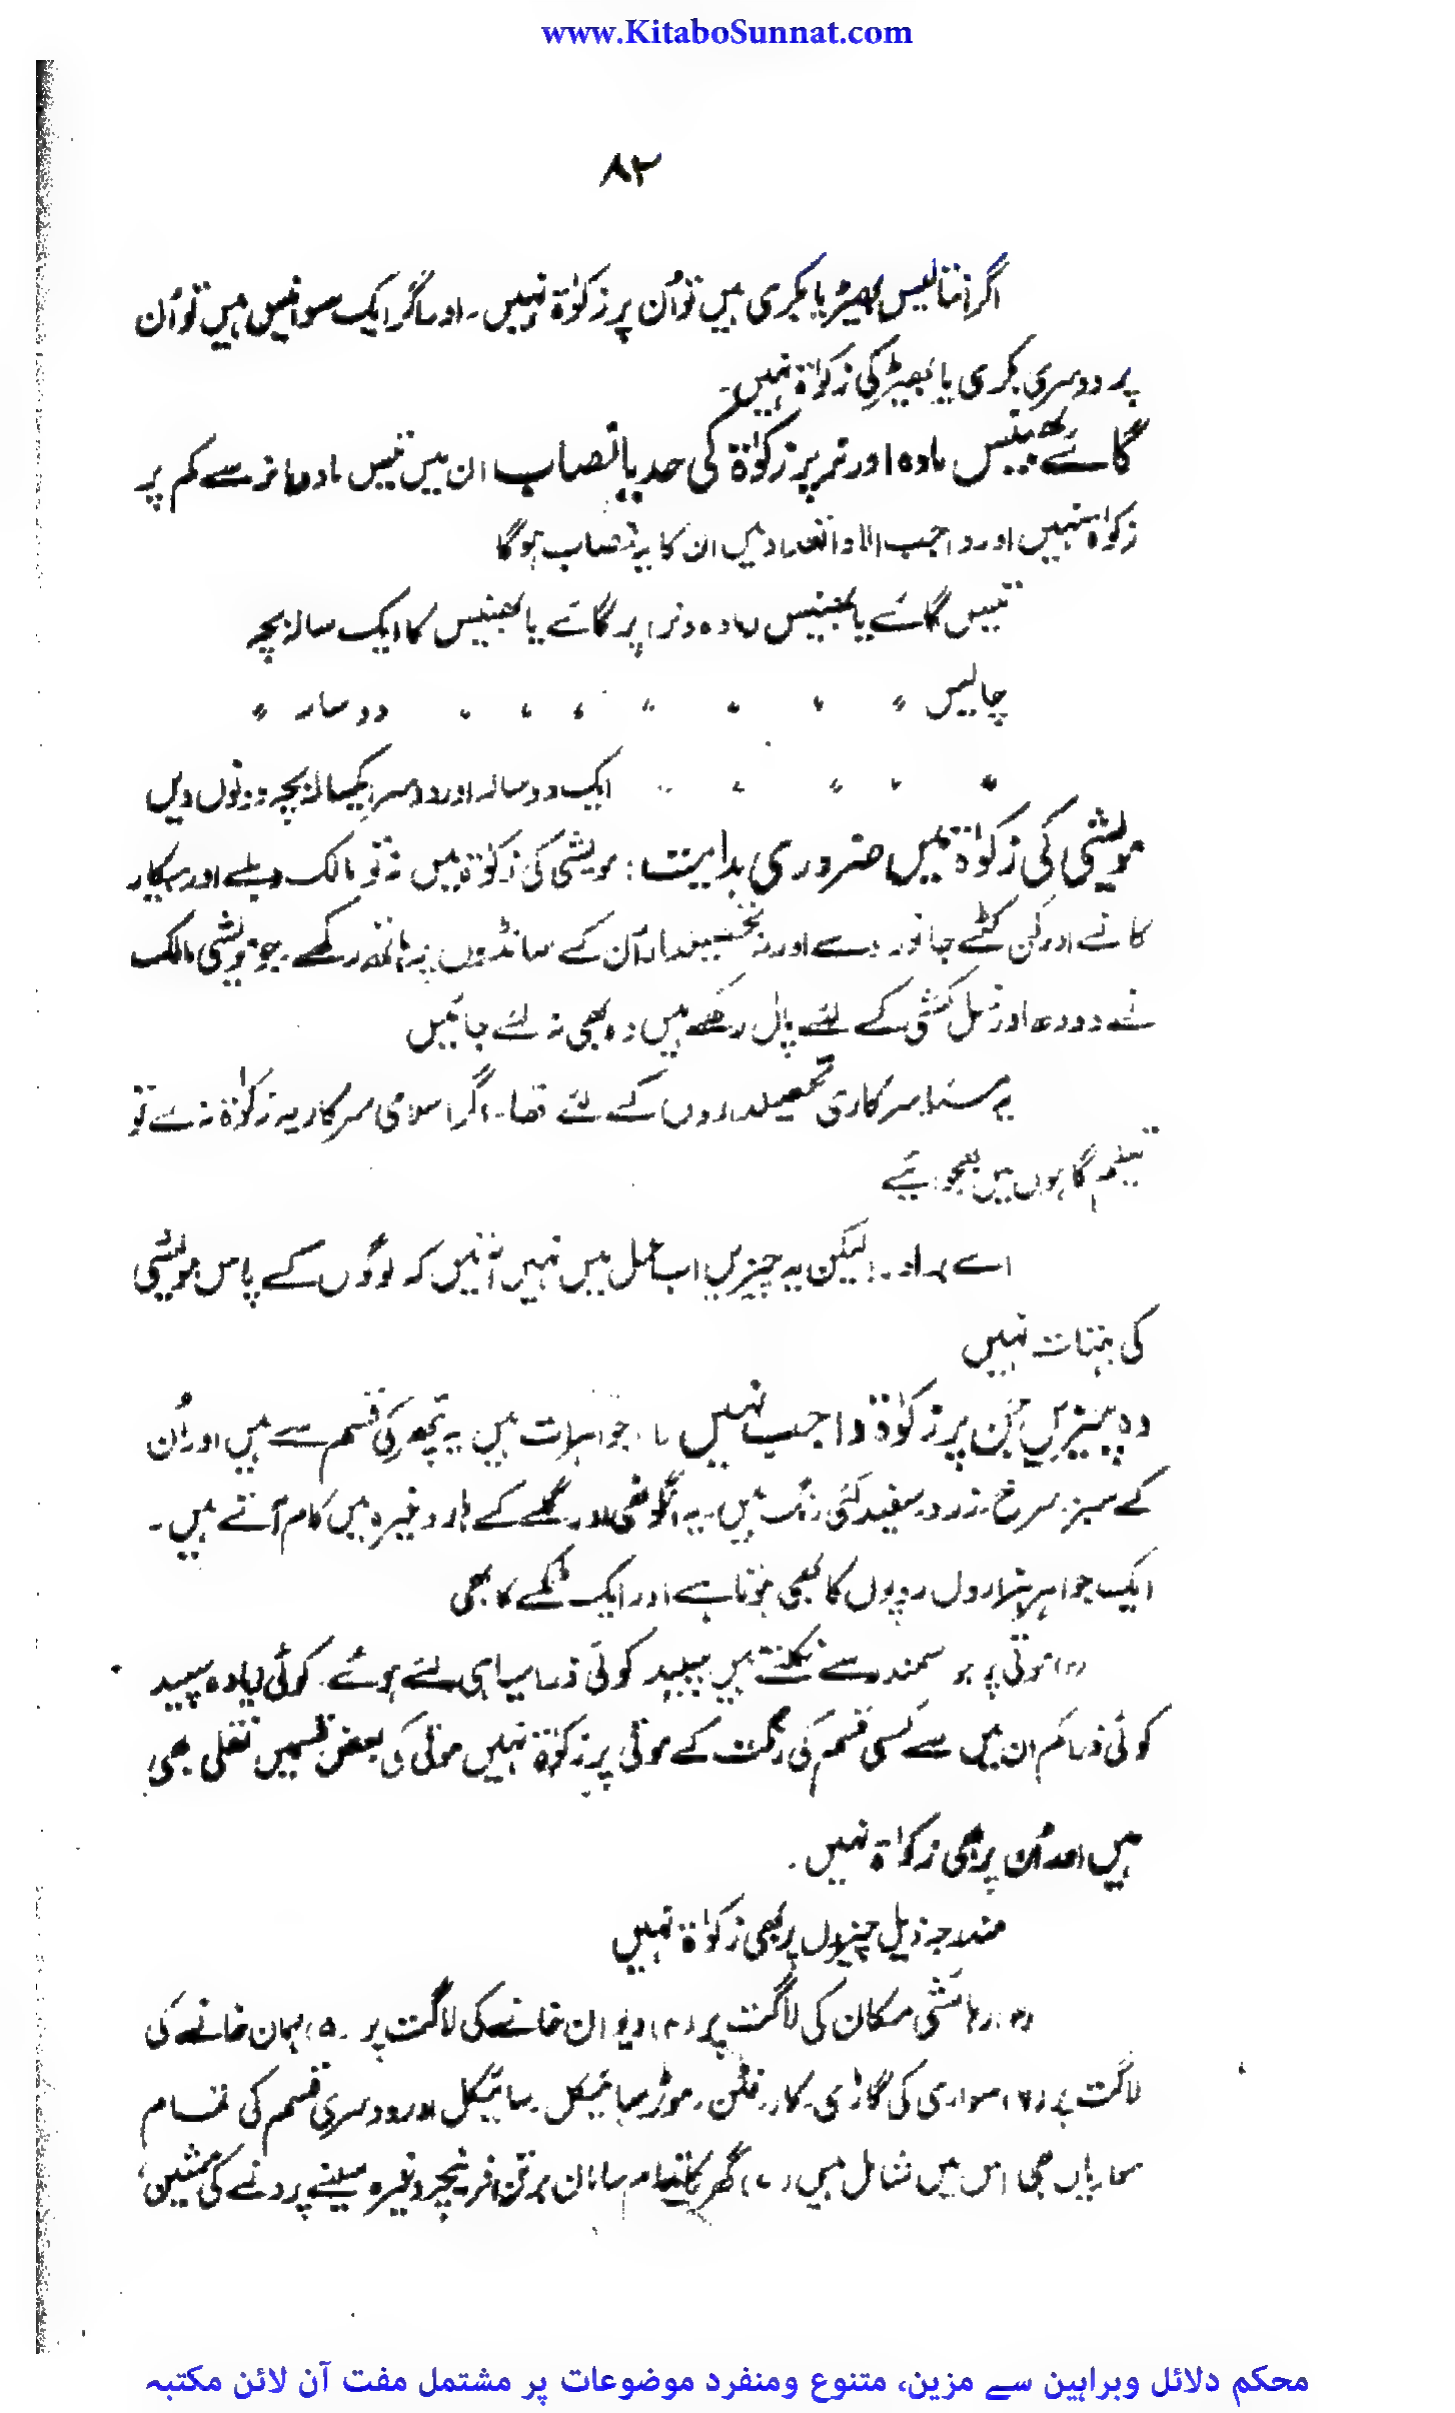 www.KitaboSunnat.com
۸۲
اگر انتالیس بھیڑ یا بکری ہیں تو اُن پر زکوٰۃ نہیں۔ اور اگر ایک سو انیس ہیں تو اُن
پر دوسری بکری یا بھیڑ کی زکوٰۃ نہیں۔
گائے بھینس مادہ اور نر پر زکوٰۃ کی حد یا نصاب ان میں تیس مادہ نر سے کم پر
زکوٰۃ نہیں اور واجب الادا تعداد میں ان کا یہ نصاب ہوگا
تیس گائے یا بھینس (مادہ و نر) پر گائے یا بھینس کا ایک سالہ بچہ
چالیس 〃 〃 〃 〃 〃 〃 〃 دو سالہ 〃
〃 〃 〃 〃 〃 ایک دو سالہ اور دوسرا یکسالہ بچہ دونوں دیں
مویشی کی زکوٰۃ میں ضروری ہدایت: مویشی کی زکوٰۃ میں نہ تو مالک دبلے اور بیکار
کانے اور کن کٹے جانور دے اور نہ تحصیلدار اُن کے سانڈوں پہ ہاتھ رکھے۔ جو مویشی مالک
نے دودھ اور نسل کشی کے لئے پال رکھے ہیں وہ بھی نہ لئے جائیں
یہ مسئلہ سرکاری تحصیلداروں کے لئے تھا۔ اگر اسلامی سرکار یہ زکوٰۃ نہ لے تو
یتیم گاہوں میں بھجوائیے
اے برادر! لیکن یہ چیزیں اب عمل میں نہیں آتیں کہ لوگوں کے پاس مویشی
کی بہتات نہیں
وہ چیزیں جن پر زکوٰۃ واجب نہیں ۱، جواہرات ہیں یہ پتھر کی قسم سے ہیں اور اُن
کے سبز۔ سرخ۔ زرد۔ سفید کئی رنگ ہیں۔ یہ انگوٹھی اور گلے کے ہار وغیرہ میں کام آتے ہیں۔
ایک جواہر ہزاروں روپوں کا بھی ہوتا ہے اور ایک ٹکے کا بھی
(۲) موتی پر جو سمندر سے نکلتے ہیں سپید کوئی ذرا سیاہی لئے ہوئے۔ کوئی زیادہ سپید
کوئی ذرا کم ان میں سے کسی قسم کی رنگت کے موتی پر زکوٰۃ نہیں موتی کی بعض قسمیں نقلی بھی
ہیں اور اُن پر بھی زکوٰۃ نہیں۔
مندرجہ ذیل چیزوں پر بھی زکوٰۃ نہیں
(۳) رہائشی مکان کی لاگت پر (۴) دیوان خانے کی لاگت پر (۵) مہمان خانے کی
لاگت پر (۶) سواری کی گاڑی۔ کار۔ فٹن۔ موٹر سائیکل۔ سائیکل اور دوسری قسم کی تمام
سواریاں بھی اس میں شامل ہیں (۷) گھر کا تمام سامان برتن فرنیچر وغیرہ سینے پرونے کی مشین
محکم دلائل وبراہین سے مزین، متنوع ومنفرد موضوعات پر مشتمل مفت آن لائن مکتبہ